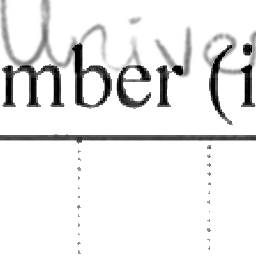 Univer
mber (i